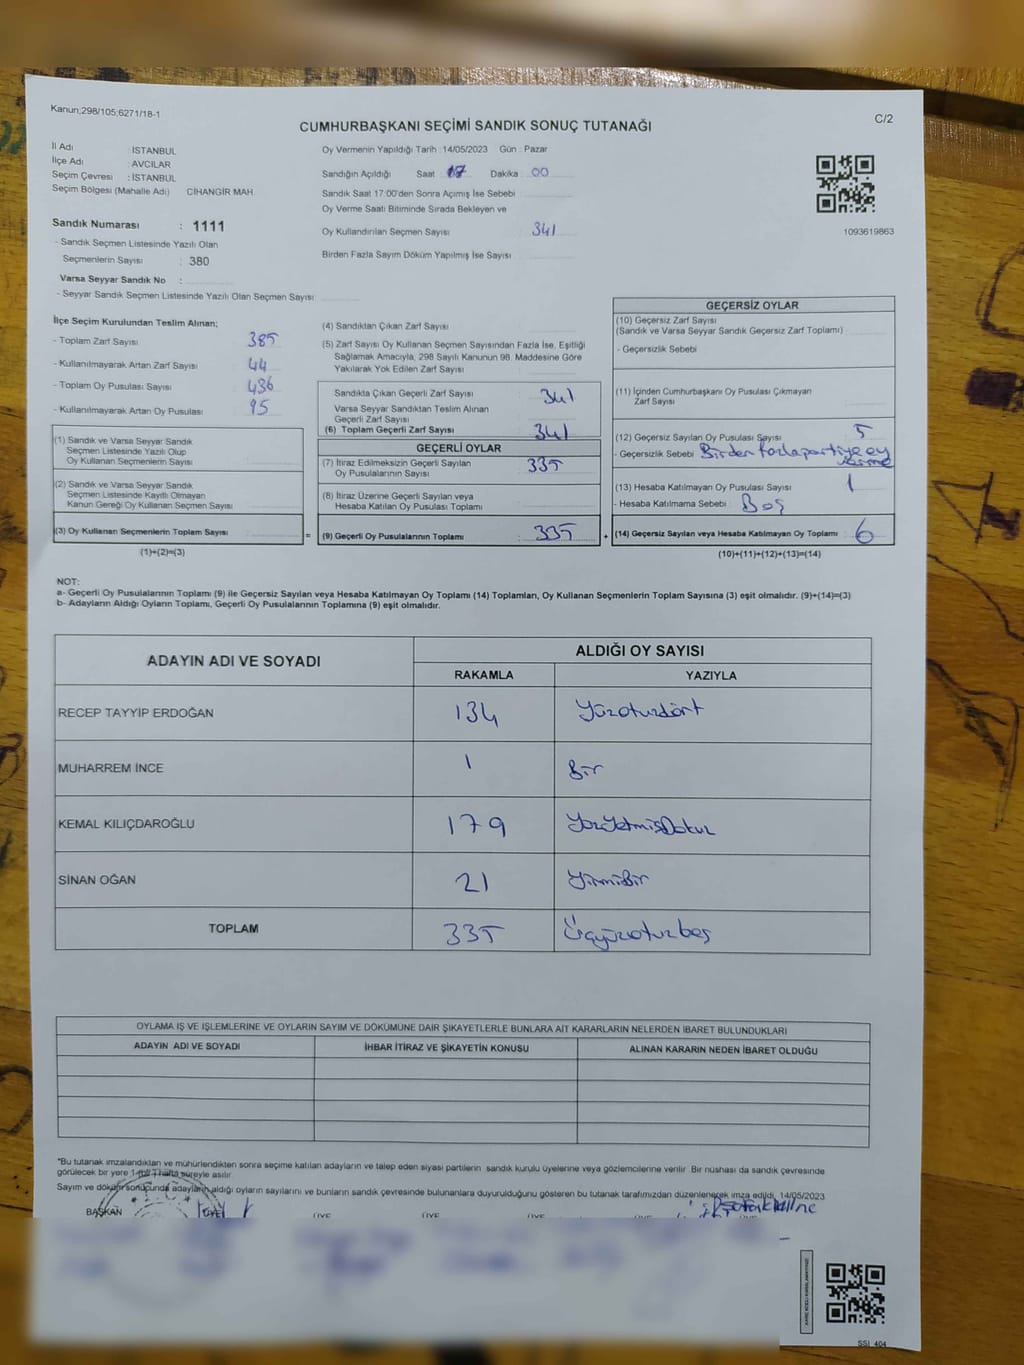 Kanun;298/105;6271/18-1
C/2
CUMHURBAŞKANI SEÇİMİ SANDIK SONUÇ TUTANAĞI
İl Adı : İSTANBUL
İlçe Adı : AVCILAR
Seçim Çevresi : İSTANBUL
Seçim Bölgesi (Mahalle Adı) CİHANGİR MAH.
Sandık Numarası : 1111
- Sandık Seçmen Listesinde Yazılı Olan
Seçmenlerin Sayısı : 380
Varsa Seyyar Sandık No :
- Seyyar Sandık Seçmen Listesinde Yazılı Olan Seçmen Sayısı:
Oy Vermenin Yapıldığı Tarih : 14/05/2023 Gün : Pazar
Sandığın Açıldığı Saat : 17 Dakika : 00
Sandık Saat 17:00'den Sonra Açımış İse Sebebi :
Oy Verme Saati Bitiminde Sırada Bekleyen ve
Oy Kullandırılan Seçmen Sayısı : 341
Birden Fazla Sayım Döküm Yapılmış İse Sayısı :
1093619863
İlçe Seçim Kurulundan Teslim Alınan;
- Toplam Zarf Sayısı : 385
- Kullanılmayarak Artan Zarf Sayısı : 44
- Toplam Oy Pusulası Sayısı : 436
- Kullanılmayarak Artan Oy Pusulası : 95
(1) Sandık ve Varsa Seyyar Sandık
Seçmen Listesinde Yazılı Olup
Oy Kullanan Seçmenlerin Sayısı :
(2) Sandık ve Varsa Seyyar Sandık
Seçmen Listesinde Kayıtlı Olmayan
Kanun Gereği Oy Kullanan Seçmen Sayısı :
(3) Oy Kullanan Seçmenlerin Toplam Sayısı :
(1)+(2)=(3)
(4) Sandıktan Çıkan Zarf Sayısı :
(5) Zarf Sayısı Oy Kullanan Seçmen Sayısından Fazla İse, Eşitliği
Sağlamak Amacıyla, 298 Sayılı Kanunun 98. Maddesine Göre
Yakılarak Yok Edilen Zarf Sayısı :
Sandıkta Çıkan Geçerli Zarf Sayısı : 341
Varsa Seyyar Sandıktan Teslim Alınan
Geçerli Zarf Sayısı :
(6) Toplam Geçerli Zarf Sayısı : 341
GEÇERLİ OYLAR
(7) İtiraz Edilmeksizin Geçerli Sayılan : 335
Oy Pusulalarının Sayısı
(8) İtiraz Üzerine Geçerli Sayılan veya
Hesaba Katılan Oy Pusulası Toplamı :
= (9) Geçerli Oy Pusulalarının Toplamı : 335 +
GEÇERSİZ OYLAR
(10) Geçersiz Zarf Sayısı
(Sandık ve Varsa Seyyar Sandık Geçersiz Zarf Toplamı) :
- Geçersizlik Sebebi :
(11) İçinden Cumhurbaşkanı Oy Pusulası Çıkmayan
Zarf Sayısı :
(12) Geçersiz Sayılan Oy Pusulası Sayısı : 5
- Geçersizlik Sebebi : Birden fazla partiye oy
verme
(13) Hesaba Katılmayan Oy Pusulası Sayısı : 1
- Hesaba Katılmama Sebebi : Boş
(14) Geçersiz Sayılan veya Hesaba Katılmayan Oy Toplamı : 6
(10)+(11)+(12)+(13)=(14)
NOT:
a- Geçerli Oy Pusulalarının Toplamı (9) ile Geçersiz Sayılan veya Hesaba Katılmayan Oy Toplamı (14) Toplamları, Oy Kullanan Seçmenlerin Toplam Sayısına (3) eşit olmalıdır. (9)+(14)=(3)
b- Adayların Aldığı Oyların Toplamı, Geçerli Oy Pusulalarının Toplamına (9) eşit olmalıdır.
ADAYIN ADI VE SOYADI
ALDIĞI OY SAYISI
RAKAMLA YAZIYLA
RECEP TAYYİP ERDOĞAN 134 Yüzotuzdört
MUHARREM İNCE 1 Bir
KEMAL KILIÇDAROĞLU 179 YüzYetmişDokuz
SİNAN OĞAN 21 YirmiBir
TOPLAM 335 Üçyüzotuzbeş
OYLAMA İŞ VE İŞLEMLERİNE VE OYLARIN SAYIM VE DÖKÜMÜNE DAİR ŞİKAYETLERLE BUNLARA AİT KARARLARIN NELERDEN İBARET BULUNDUKLARI
ADAYIN ADI VE SOYADI İHBAR İTİRAZ VE ŞİKAYETİN KONUSU ALINAN KARARIN NEDEN İBARET OLDUĞU
*Bu tutanak imzalandıktan ve mühürlendikten sonra seçime katılan adayların ve talep eden siyasi partilerin sandık kurulu üyelerine veya gözlemcilerine verilir. Bir nüshası da sandık çevresinde
görülecek bir yere 1 hafta süreyle asılır.
Sayım ve döküm sonucunda adayların aldığı oyların sayılarını ve bunların sandık çevresinde bulunanlara duyurulduğunu gösteren bu tutanak tarafımızdan düzenlenerek imza edildi. 14/05/2023
BAŞKAN ÜYE ÜYE ÜYE ÜYE
SSİ_404